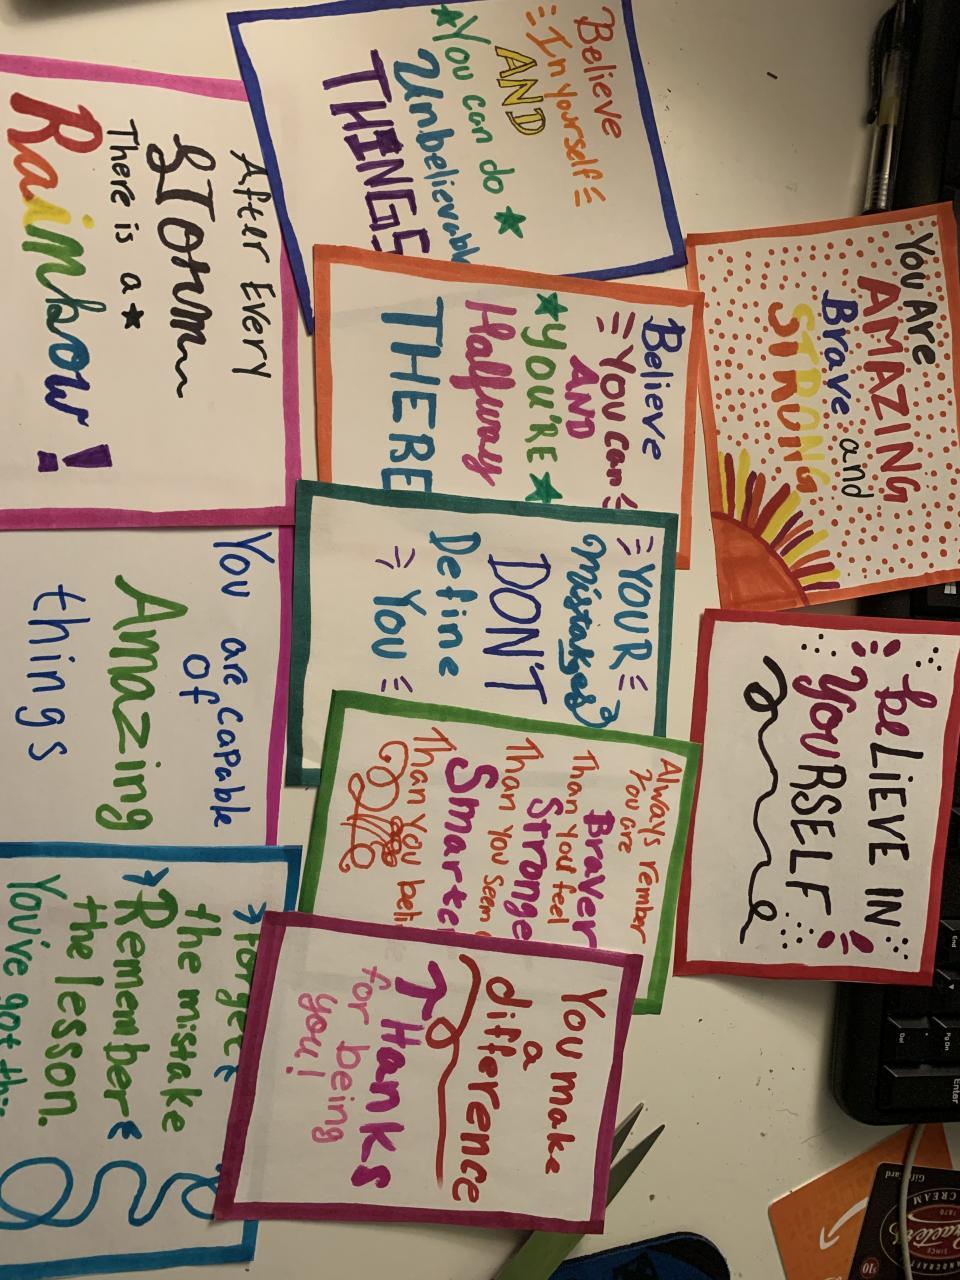 Believe
In Yourself
AND
You can do
Unbelievable
THINGS
After Every
STORM
There is a
Rainbow!
Believe
You Can
AND
YOU'RE
Halfway
THERE
You ARE
AMAZING
Brave and
STRONG
YOUR
Mistakes
DON'T
Define
You
beLIEVE IN
YOURSELF
You are capable
Of
Amazing
things
Always rember
You are
BRAVER
Than You feel
Stronge
Than You seem
Smarte
Than You beli
Forget
the mistake
Remember
the lesson.
You've got this
You make
a
difference
THanks
for being
you!
Graeter's
SINCE
1870
CREAM
HANDCRAFT
Gift Card
$10
End
Del
Pg Dn
Enter